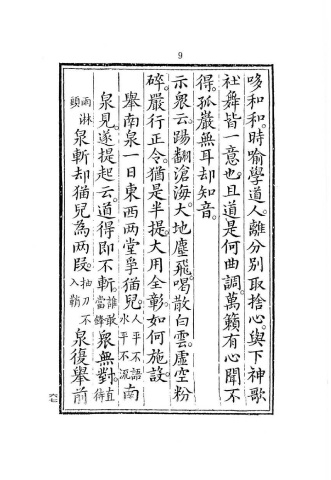 9
哆和和。時喻學道人。離分別取捨心。與下神歌
社舞皆一意也。且道是何曲調。萬籟有心聞不
得。孤巖無耳却知音。
示衆云。踢翻滄海。大地塵飛。喝散白雲。虛空粉
碎。嚴行正令。猶是半提大用全彰。如何施設。
舉南泉一日東西两堂爭猫兒。人平不語水平不流南
泉見。遂提起云。道得即不斬。誰敢當鋒衆無對。直待
雨淋頭泉斬却猫兒為两段。抽刀不入鞘泉復舉前
六七